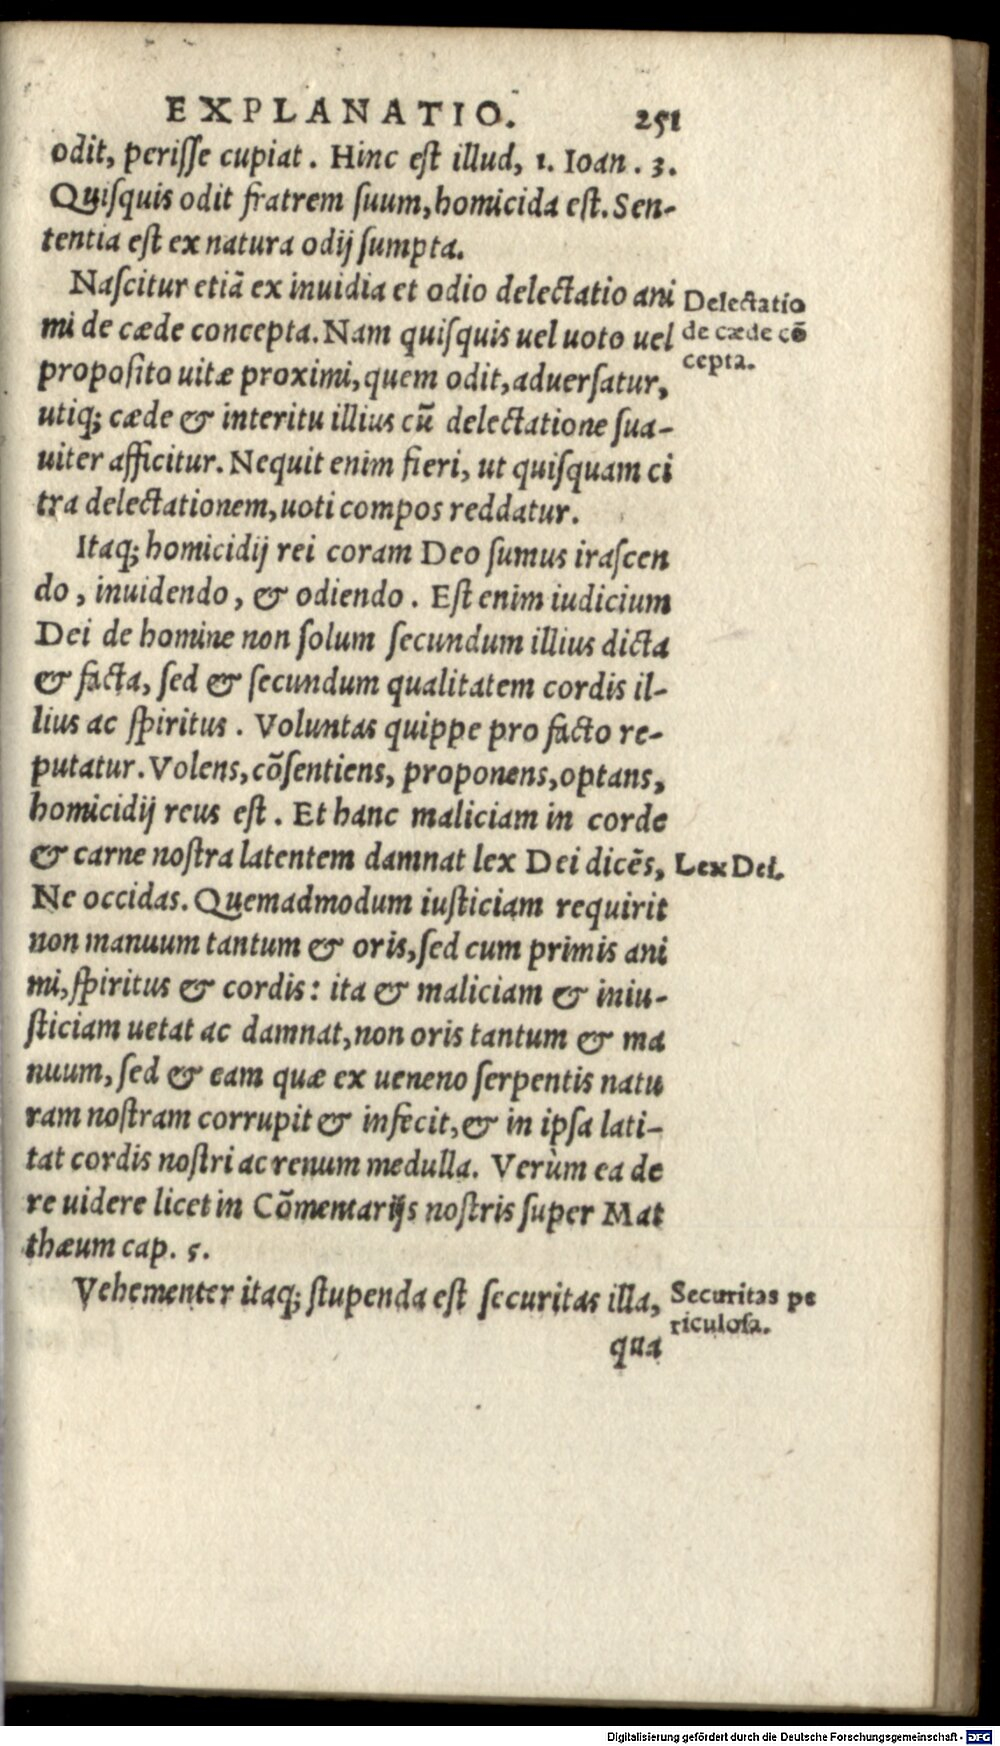 EXPLANATIO. 251
odit, periſſe cupiat. Hinc eſt illud, 1. Ioan. 3.
Quiſquis odit fratrem ſuum, homicida eſt. Sen-
tentia eſt ex natura odij ſumpta.
Naſcitur etiã ex inuidia et odio delectatio ani
mi de cæde concepta. Nam quiſquis uel uoto uel
propoſito uitæ proximi, quem odit, aduerſatur,
utiq; cæde & interitu illius cũ delectatione ſua-
uiter afficitur. Nequit enim fieri, ut quiſquam ci
tra delectationem, uoti compos reddatur.
Delectatio
de cæde cõ
cepta.
Itaq; homicidij rei coram Deo ſumus iraſcen
do, inuidendo, & odiendo. Eſt enim iudicium
Dei de homine non ſolum ſecundum illius dicta
& facta, ſed & ſecundum qualitatem cordis il-
lius ac ſpiritus. Voluntas quippe pro facto re-
putatur. Volens, cõſentiens, proponens, optans,
homicidij reus eſt. Et hanc maliciam in corde
& carne noſtra latentem damnat lex Dei dicẽs,
Ne occidas. Quemadmodum iuſticiam requirit
non manuum tantum & oris, ſed cum primis ani
mi, ſpiritus & cordis: ita & maliciam & iniu-
ſticiam uetat ac damnat, non oris tantum & ma
nuum, ſed & eam quæ ex ueneno ſerpentis natu
ram noſtram corrupit & infecit, & in ipſa lati-
tat cordis noſtri ac renum medulla. Verùm ea de
re uidere licet in Cõmentarijs noſtris ſuper Mat
thæum cap. 5.
Lex Dei.
Vehementer itaq; ſtupenda eſt ſecuritas illa,
qua
Securitas pe
riculoſa.
Digitalisierung gefördert durch die Deutsche Forschungsgemeinschaft - DFG